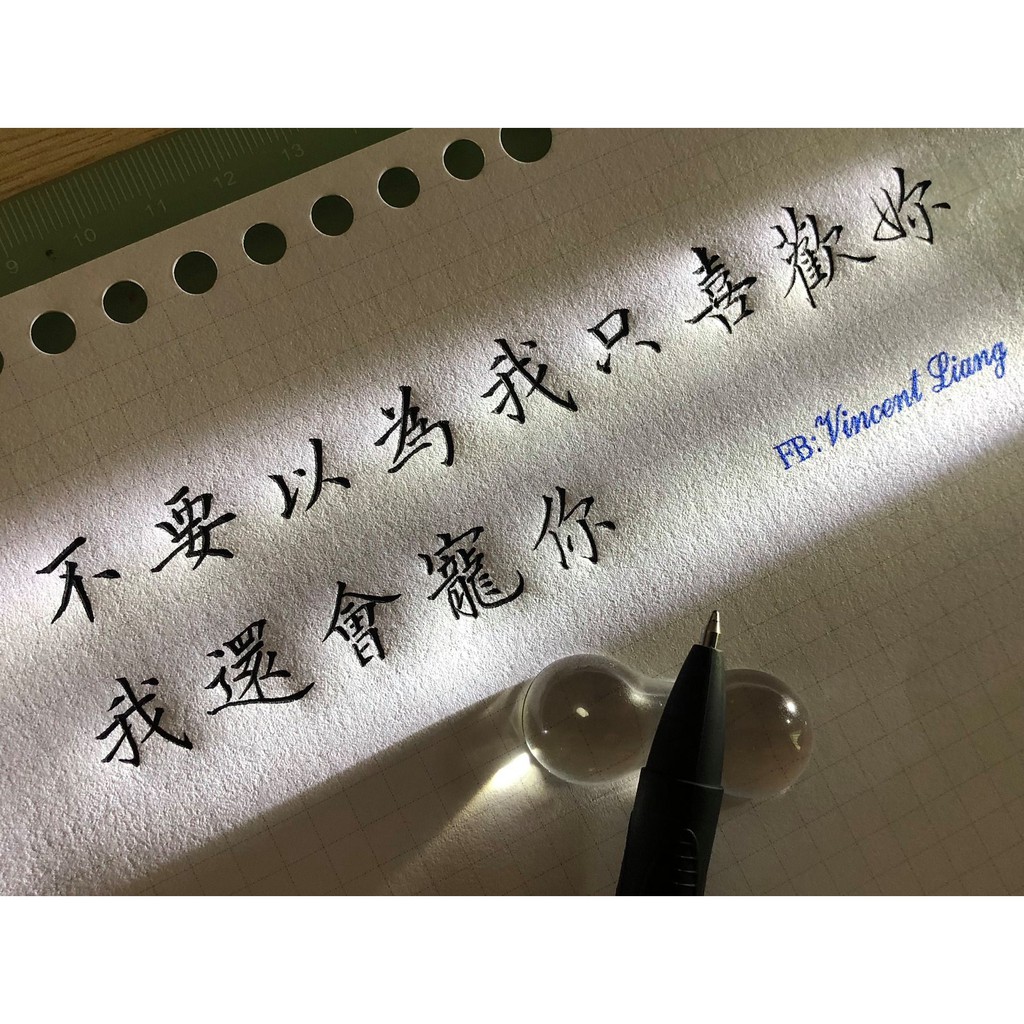 不要以為我只喜歡妳
我還會寵你
FB: Vincent Liang
9 10 11 12 13